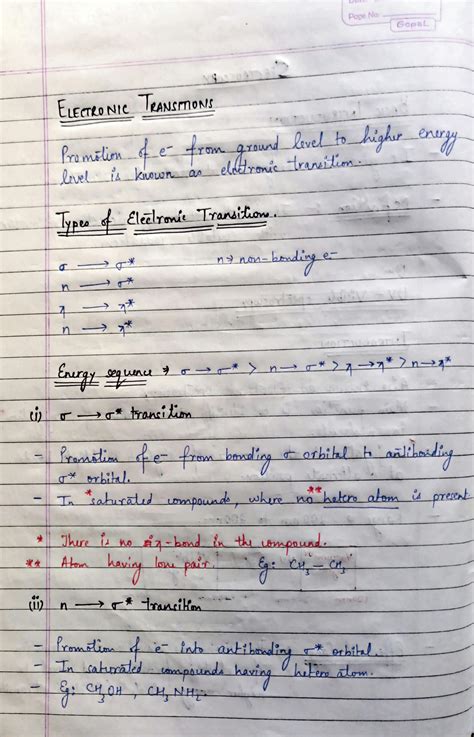 Page No.
GOPAL
ELECTRONIC TRANSITIONS
Promotion of e- from ground level to higher energy
level is known as electronic transition.
Types of Electronic Transition.
σ → σ* n → non-bonding e-
n → σ*
π → π*
n → π*
Energy sequence → σ → σ* > n → σ* > π → π* > n → π*
(i) σ → σ* transition
- Promotion of e- from bonding σ orbital to antibonding
σ* orbital.
- In *saturated compounds, where no **hetero atom is present
* There is no π-bond in the compound.
** Atom having lone pair. Eg: CH3 - CH3
(ii) n → σ* transition
- Promotion of e- into antibonding σ* orbital.
- In saturated compounds having hetero atom.
- Eg: CH3OH, CH3NH2.